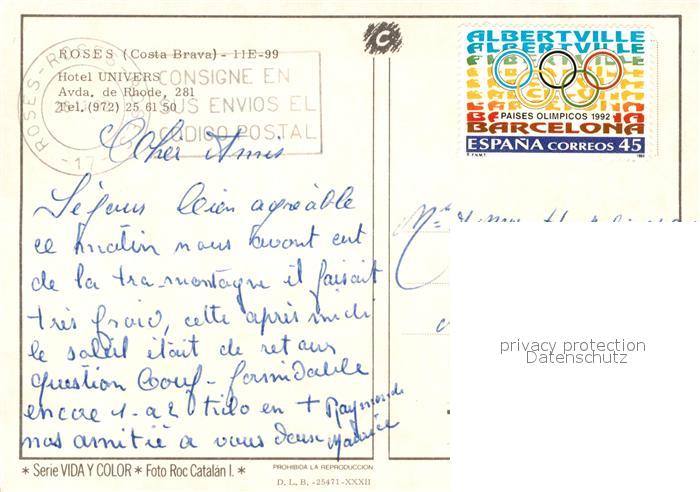 ROSES (Costa Brava) - 11E-99
Hotel UNIVERS
Avda. de Rhode, 281
Tel. (972) 25 61 50
ROSES-ROS
CONSIGNE EN
SUS ENVIOS EL
CODIGO POSTAL
C
ALBERTVILLE
ALBERTVILLE
PAISES OLIMPICOS 1992
BARCELONA
ESPAÑA CORREOS 45
F.N.M.T. 1992
Cher Amis
Séjour bien agréable
ce matin nous avont eut
de la tramontagne il faisait
très froid, cette après midi
le soleil était de retour
question bouf - formidable
encore 1 a 2 kilo en +
nos amitié a vous deux
Raymonde
Maurice
privacy protection
Datenschutz
* Serie VIDA Y COLOR * Foto Roc Catalán I. *
PROHIBIDA LA REPRODUCCION
D. L. B. -25471-XXXII